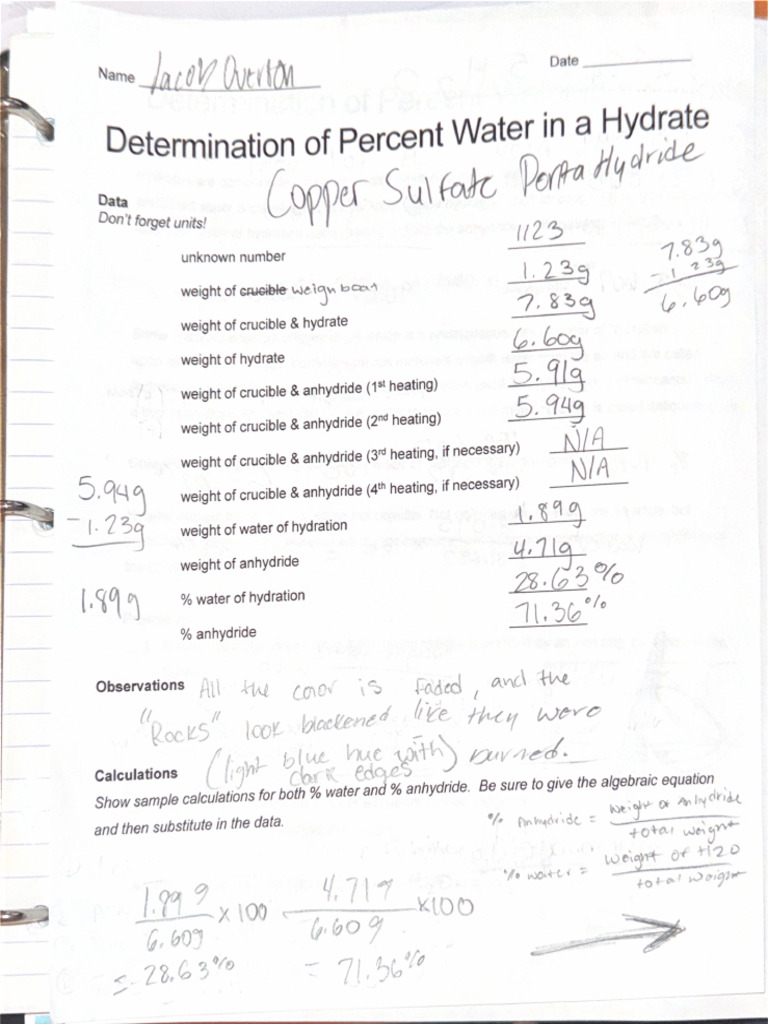 Name Jacob Overton Date
Determination of Percent Water in a Hydrate
Copper Sulfate Penta Hydride
Data
Don't forget units!
unknown number 1123
weight of crucible weigh boat 1.23g
weight of crucible & hydrate 7.83g
weight of hydrate 6.60g
weight of crucible & anhydride (1st heating) 5.91g
weight of crucible & anhydride (2nd heating) 5.94g
weight of crucible & anhydride (3rd heating, if necessary) N/A
weight of crucible & anhydride (4th heating, if necessary) N/A
weight of water of hydration 1.89g
weight of anhydride 4.71g
% water of hydration 28.63%
% anhydride 71.36%
7.83g
- 1.23g
6.60g
5.94g
- 1.23g
1.89g
Observations All the color is faded, and the
"Rocks" look blackened like they were
(light blue hue with) burned.
dark edges
Calculations
Show sample calculations for both % water and % anhydride. Be sure to give the algebraic equation
and then substitute in the data.
% Anhydride = weight of Anhydride
total weight
% water = weight of H2O
total weight
1.89g 4.71g
x100 x100
6.60g 6.60g
= 28.63% = 71.36%